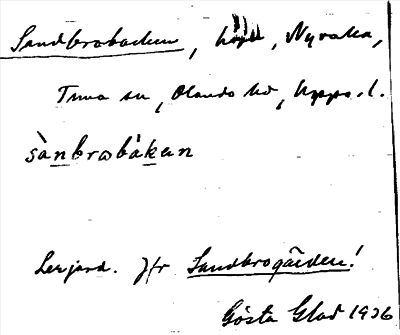 Sandbrobacken, höjd, Nyvalla,
Tuna sn, Olands hd, Upps. l.
sànbrobákan
Lerjord. Jfr Sandbrogärden!
Gösta Glad 1936